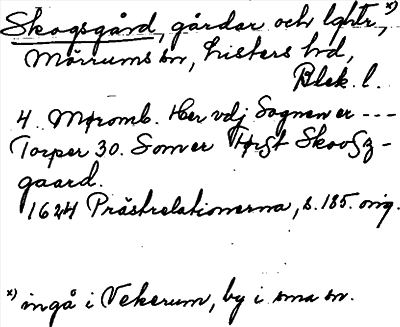 Skogsgård, gårdar och lghtr, x)
Mörrums sn, Listers hd,
Blek. l.
4. Møromb. Her vdj Sognen er ---
Torper 30. Som er Først Skoufz-
gaard.
1624 Prästrelationerna, s. 185. orig.
x) ingå i Vekerum, by i sma sn.